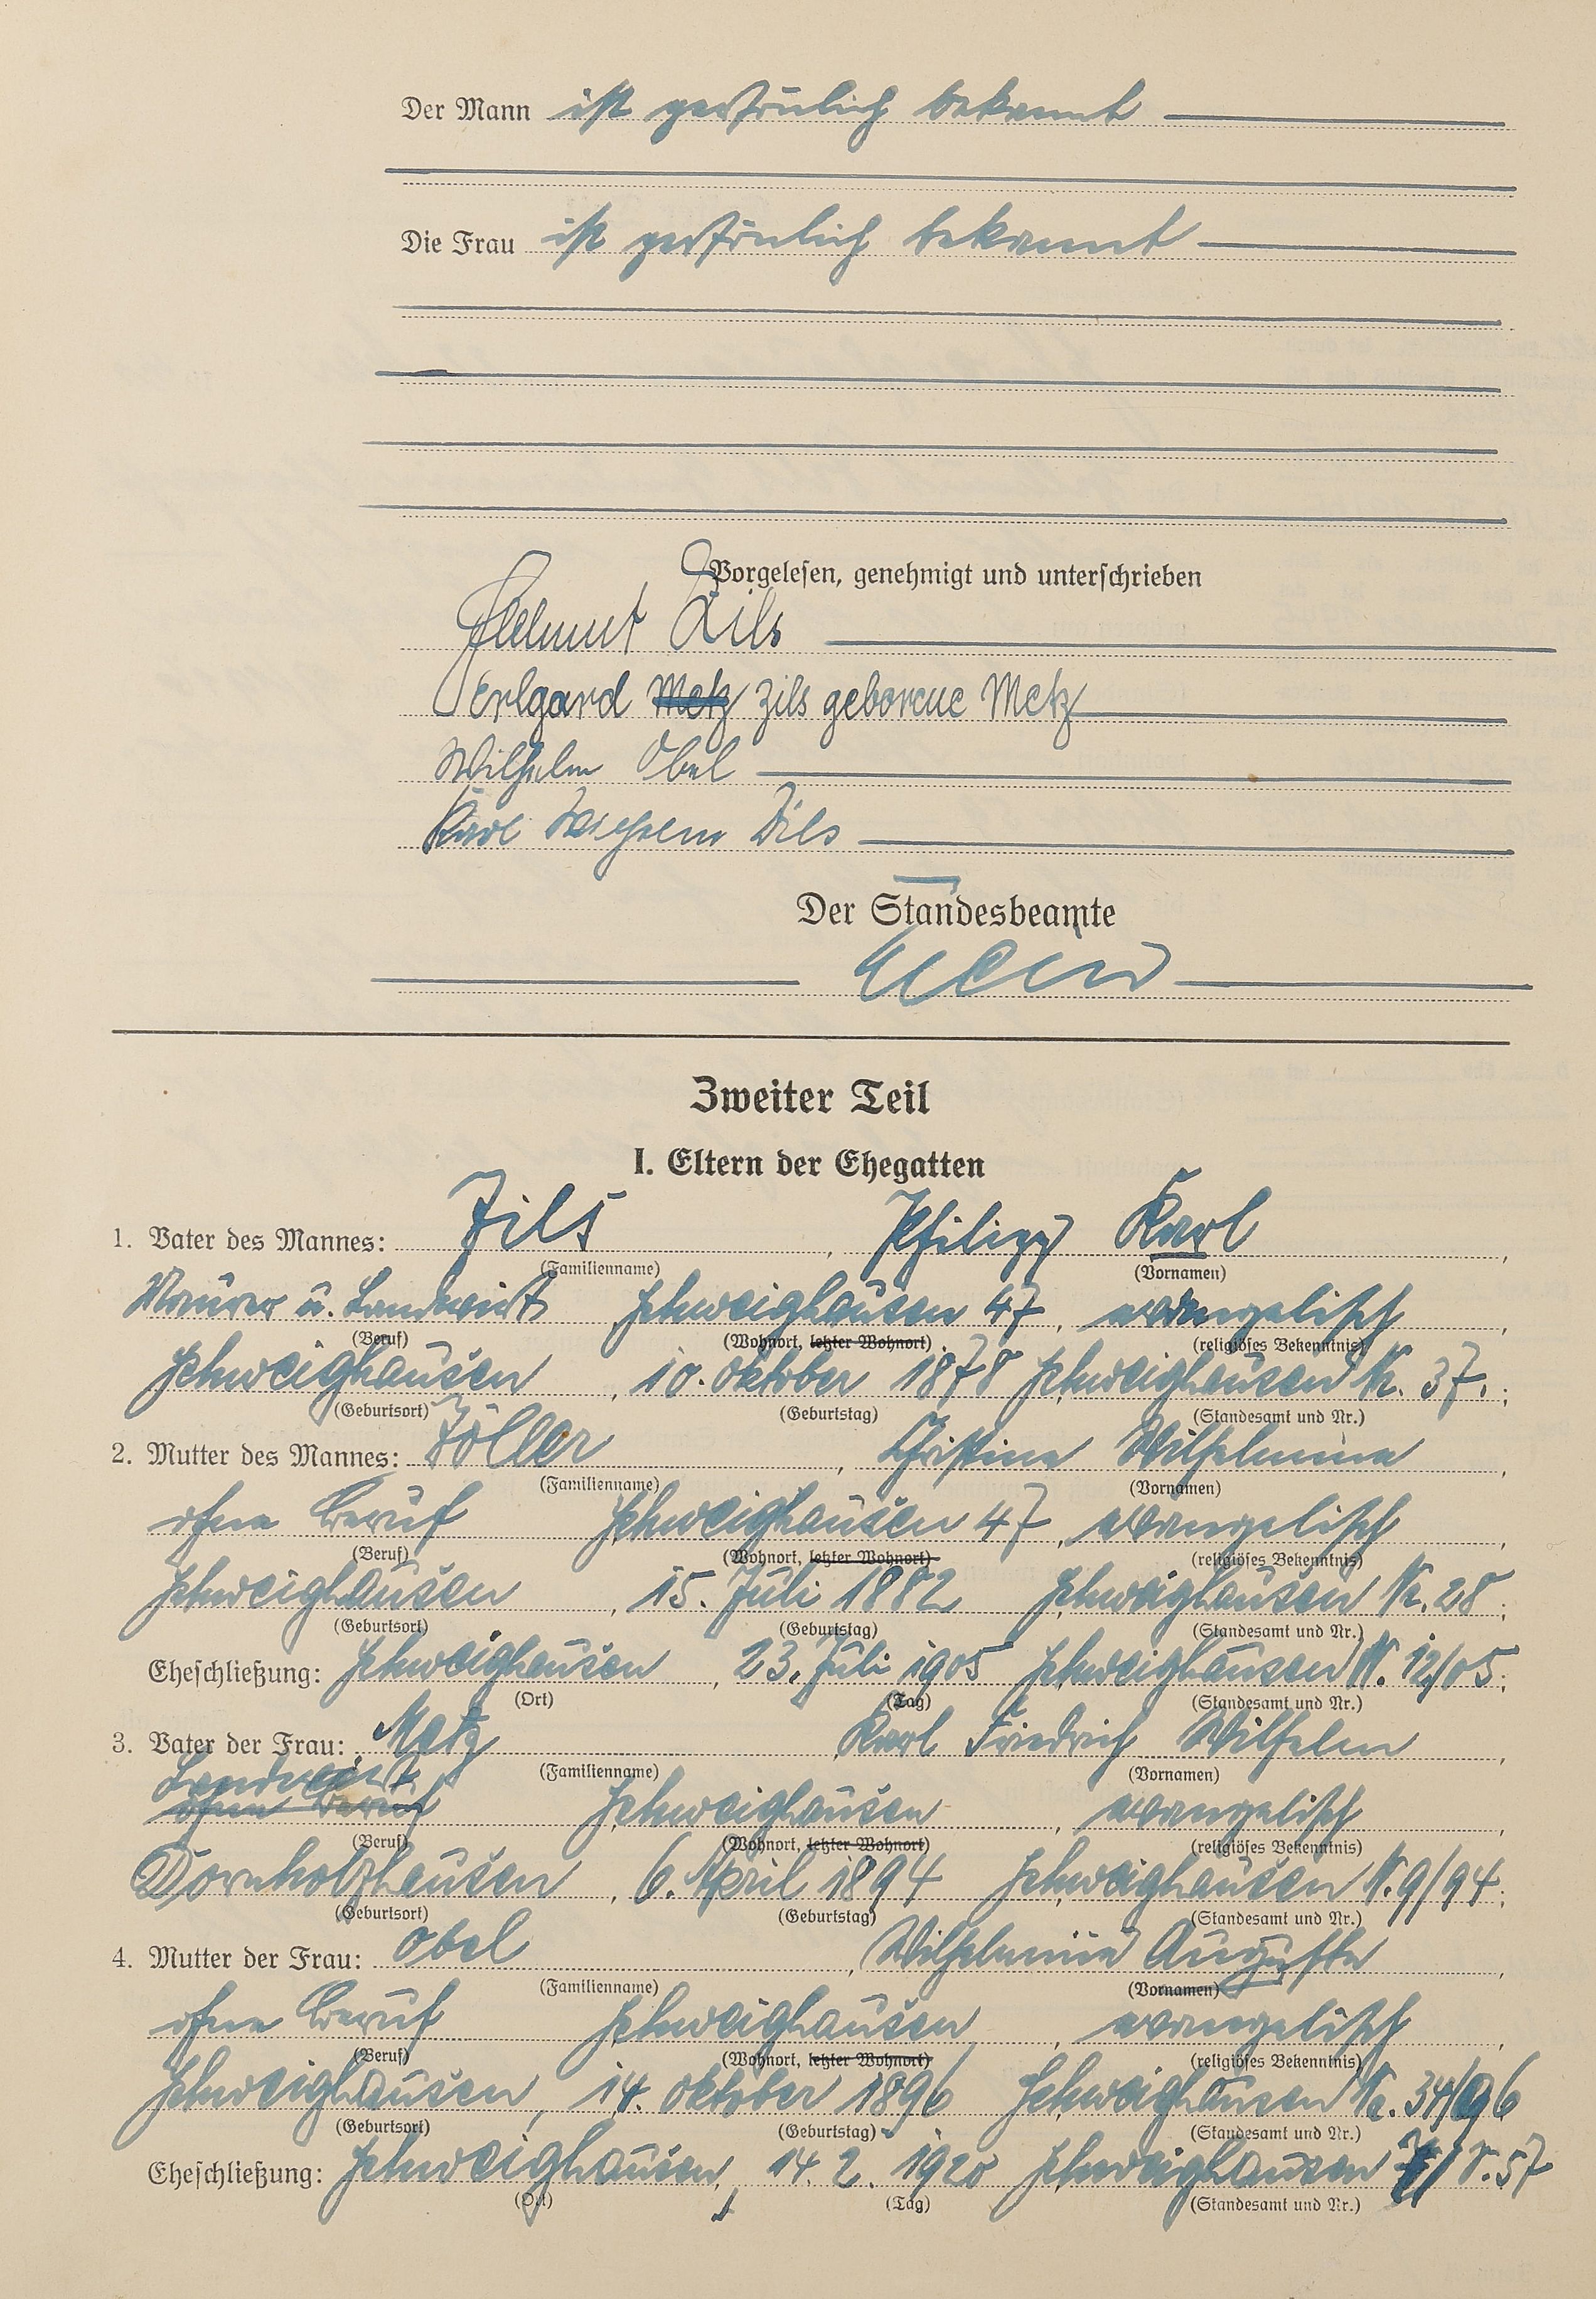 Der Mann ist persönlich bekannt
Die Frau ist persönlich bekannt
Vorgelesen, genehmigt und unterschrieben
Helmut Zils
Erlgard Metz Zils geborene Metz
Wilhelm Obel
Karl Wilhelm Zils
Der Standesbeamte
Zweiter Teil
I. Eltern der Ehegatten
1. Vater des Mannes: Zils, Philipp Karl,
(Familienname) (Vornamen)
Maurer u. Landwirt Schweighausen 47, evangelisch,
(Beruf) (Wohnort, letzter Wohnort) (religiöses Bekenntnis)
Schweighausen, 10. Oktober 1878 Schweighausen Nr. 37.;
(Geburtsort) (Geburtstag) (Standesamt und Nr.)
2. Mutter des Mannes: Zöller, Christine Wilhelmine,
(Familienname) (Vornamen)
ohne Beruf Schweighausen 47, evangelisch,
(Beruf) (Wohnort, letzter Wohnort) (religiöses Bekenntnis)
Schweighausen, 15. Juli 1882 Schweighausen Nr. 28;
(Geburtsort) (Geburtstag) (Standesamt und Nr.)
Eheschließung: Schweighausen, 23. Juli 1905 Schweighausen N. 12/05;
(Ort) (Tag) (Standesamt und Nr.)
3. Vater der Frau: Metz, Karl Friedrich Wilhelm,
(Familienname) (Vornamen)
Landwirt
ohne Beruf Schweighausen, evangelisch,
(Beruf) (Wohnort, letzter Wohnort) (religiöses Bekenntnis)
Dornholzhausen, 6. April 1894 Schweighausen N. 9/94;
(Geburtsort) (Geburtstag) (Standesamt und Nr.)
4. Mutter der Frau: Obel, Wilhelmine Auguste,
(Familienname) (Vornamen)
ohne Beruf Schweighausen, evangelisch,
(Beruf) (Wohnort, letzter Wohnort) (religiöses Bekenntnis)
Schweighausen, 14. Oktober 1896 Schweighausen Nr. 34/96
(Geburtsort) (Geburtstag) (Standesamt und Nr.)
Eheschließung: Schweighausen, 14. 2. 1920 Schweighausen
(Ort) (Tag) (Standesamt und Nr.)